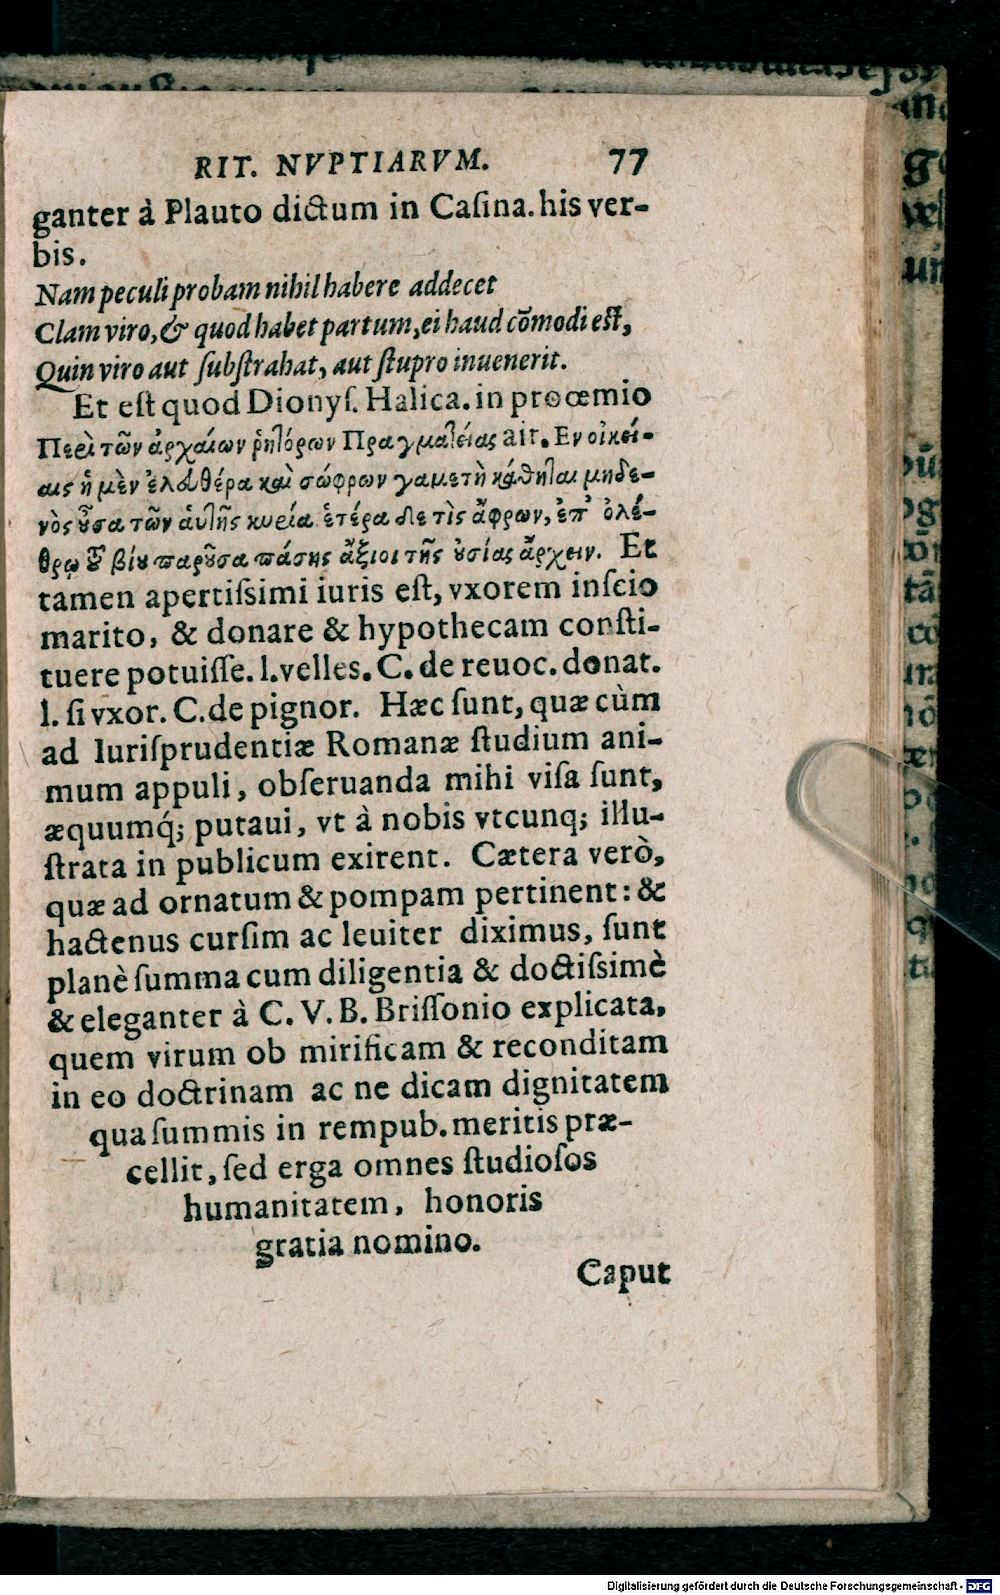 RIT. NVPTIARVM. 77
ganter à Plauto dictum in Caſina. his ver-
bis.
Nam peculi probam nihil habere addecet
Clam viro, & quod habet partum, ei haud cōmodi eſt,
Quin viro aut ſubſtrahat, aut ſtupro inuenerit.
Et eſt quod Dionyſ. Halica. in proœmio
Περὶ τῶν ἀρχαίων ῥητόρων Πραγματείας ait. Εν οἰκεί-
αις ἡ μὲν ἐλευθέρα καὶ σώφρων γαμετὴ κάθηται μηδε-
νὸς οὖσα τῶν ἁυτῆς κυρία ἑτέρα δε τὶς ἄφρων, ἐπ' ὀλέ-
θρῳ τοῦ βίου παροῦσα πάσης ἄξιοι τῆς οὐσίας ἄρχειν. Et
tamen apertiſsimi iuris eſt, vxorem inſcio
marito, & donare & hypothecam conſti-
tuere potuiſſe. l. velles. C. de reuoc. donat.
l. ſi vxor. C. de pignor. Hæc ſunt, quæ cùm
ad Iuriſprudentiæ Romanæ ſtudium ani-
mum appuli, obſeruanda mihi viſa ſunt,
æquumq́; putaui, vt à nobis vtcunq; illu-
ſtrata in publicum exirent. Cætera verò,
quæ ad ornatum & pompam pertinent: &
hactenus curſim ac leuiter diximus, ſunt
planè ſumma cum diligentia & doctiſsimè
& eleganter à C. V. B. Briſſonio explicata,
quem virum ob mirificam & reconditam
in eo doctrinam ac ne dicam dignitatem
qua ſummis in rempub. meritis præ-
cellit, ſed erga omnes ſtudioſos
humanitatem, honoris
gratia nomino.
Caput
Digitalisierung gefördert durch die Deutsche Forschungsgemeinschaft - DFG